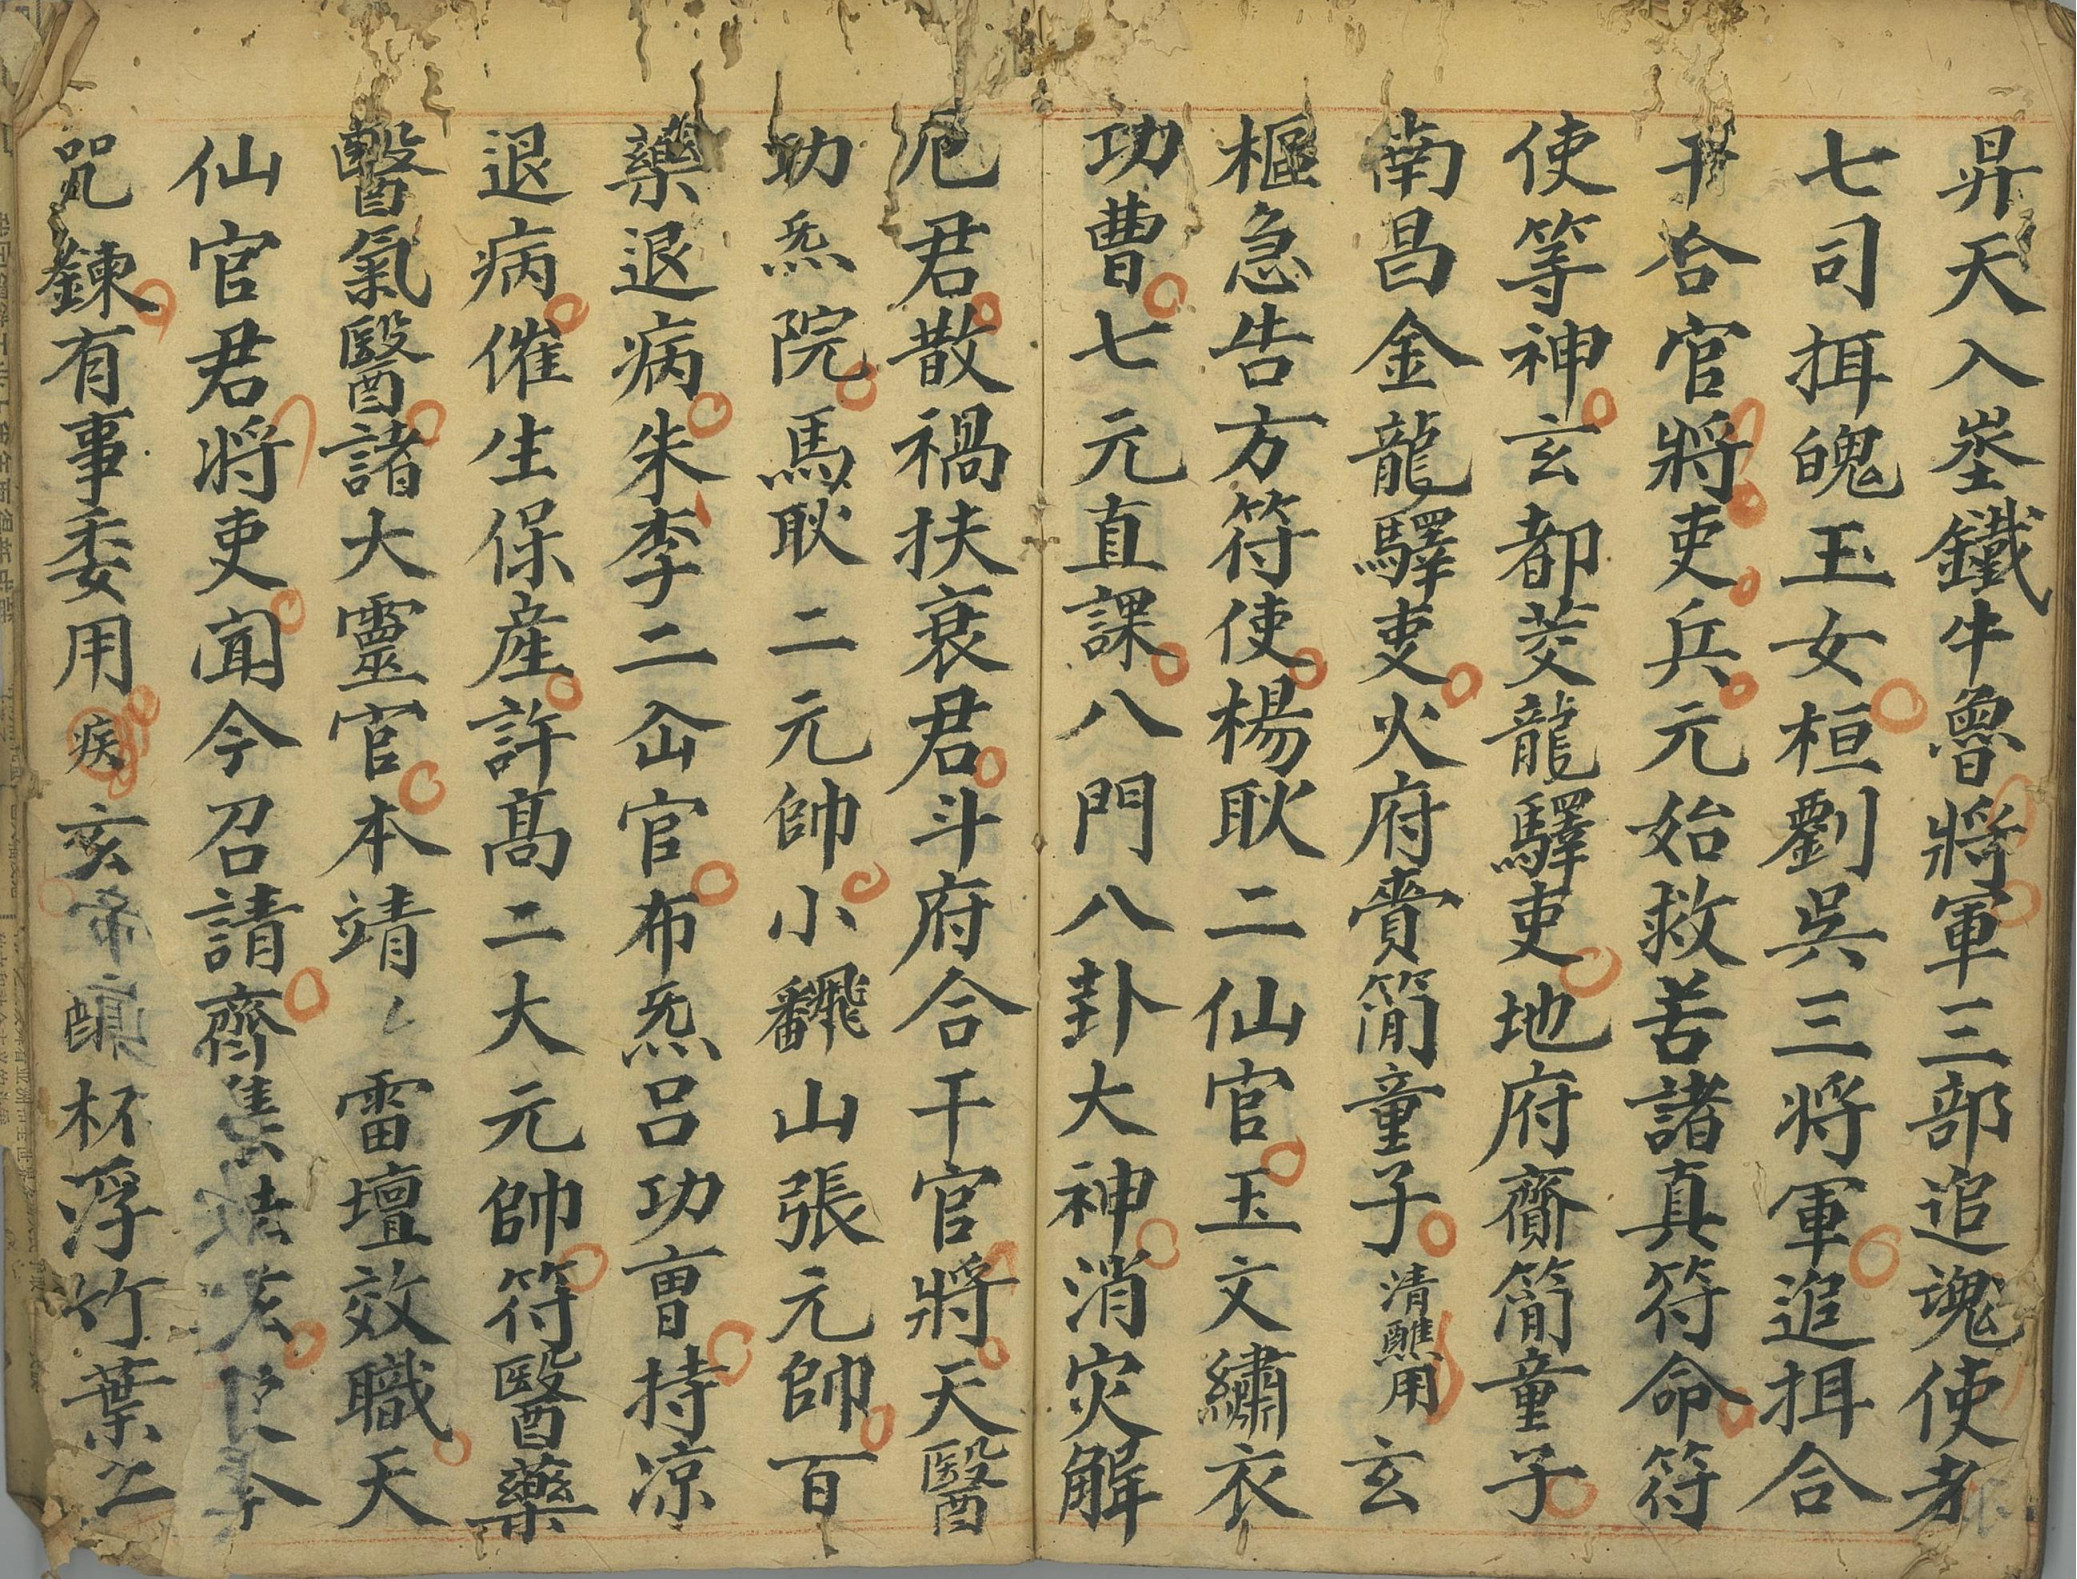 昇天入埊鐵牛魯將軍三部追魂使者
七司拘魄玉女桓劉吳三将軍追拘合
干合官將吏兵元始救苦諸真符命符
使等神玄都茭龍驛吏地府齎簡童子
南昌金龍驛吏火府賫簡童子清醮用玄
樞急告方符使楊耿二仙官玉文繡衣
功曹七元直課八門八卦大神消灾解
厄君散禍扶衰君斗府合干官將天醫
功炁院馬耿二元帥小翻山張元帥百
藥退病朱李二仚官布炁呂功曹持凉
退病催生保産許髙二大元帥符醫藥
醫氣醫諸大靈官本靖〻雷壇效職天
仙官君將吏聞今召請齊隻今
咒鍊有事委用疾玄帝杯浮竹葉之